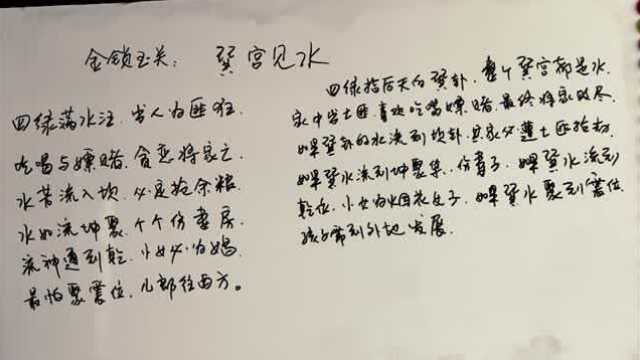 金锁玉关：巽宫见水
四绿满水注，当人为匪狂。
吃喝与嫖赌，贪恋将家亡
水若流入坎，必定抢余粮
水如流坤聚，个个伤妻房。
流神通到乾，小女必为娼
最怕聚震位，儿郎往西方。
四绿指后天的巽卦，整个巽宫都是水
家中出土匪，喜欢吃喝嫖赌，最终将家败尽
如果巽卦的水流到坎卦，其家必遭土匪抢劫
如果巽水流到坤聚集，伤妻子，如果巽水流到
乾位，小女为烟花女子，如果巽水聚到震位
孩子带到外地发展。